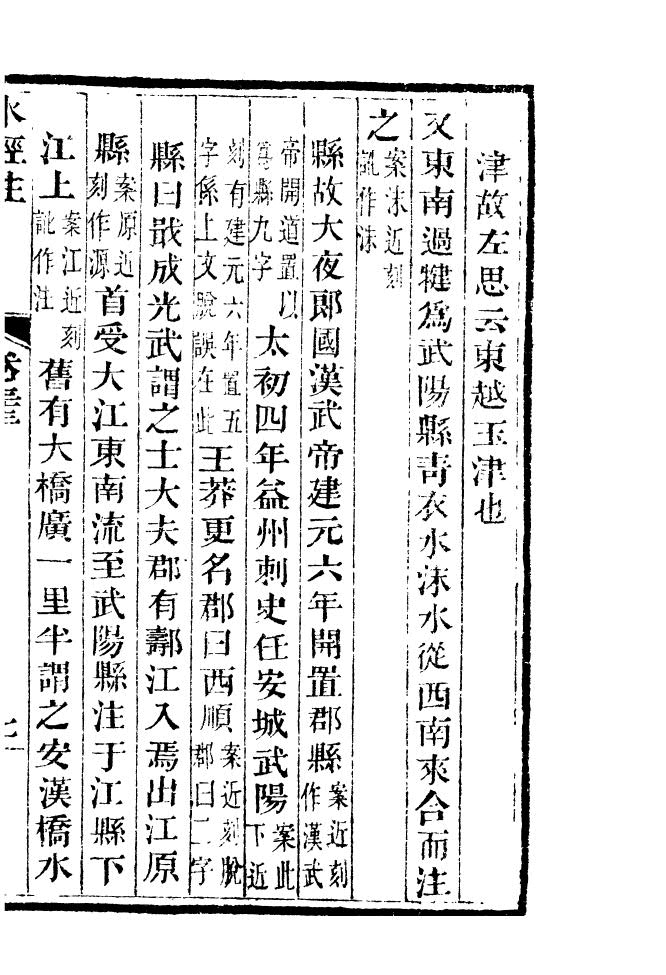 津故左思云東越玉津也
又東南過犍爲武陽縣青衣水沬水從西南來合而注
之案沬近刻訛作沫
縣故大夜郎國漢武帝建元六年開置郡縣案近刻作漢武
帝開道置以爲縣九字太初四年益州刺史任安城武陽案此下近
刻有建元六年置五字係上文脫誤在此王莽更名郡曰西順案近刻脫郡曰二字
縣曰戢成光武謂之士大夫郡有鄨江入焉出江原
縣案原近刻作源首受大江東南流至武陽縣注于江縣下
江上案江近刻訛作注舊有大橋廣一里半謂之安漢橋水
水經注 卷三十三 七